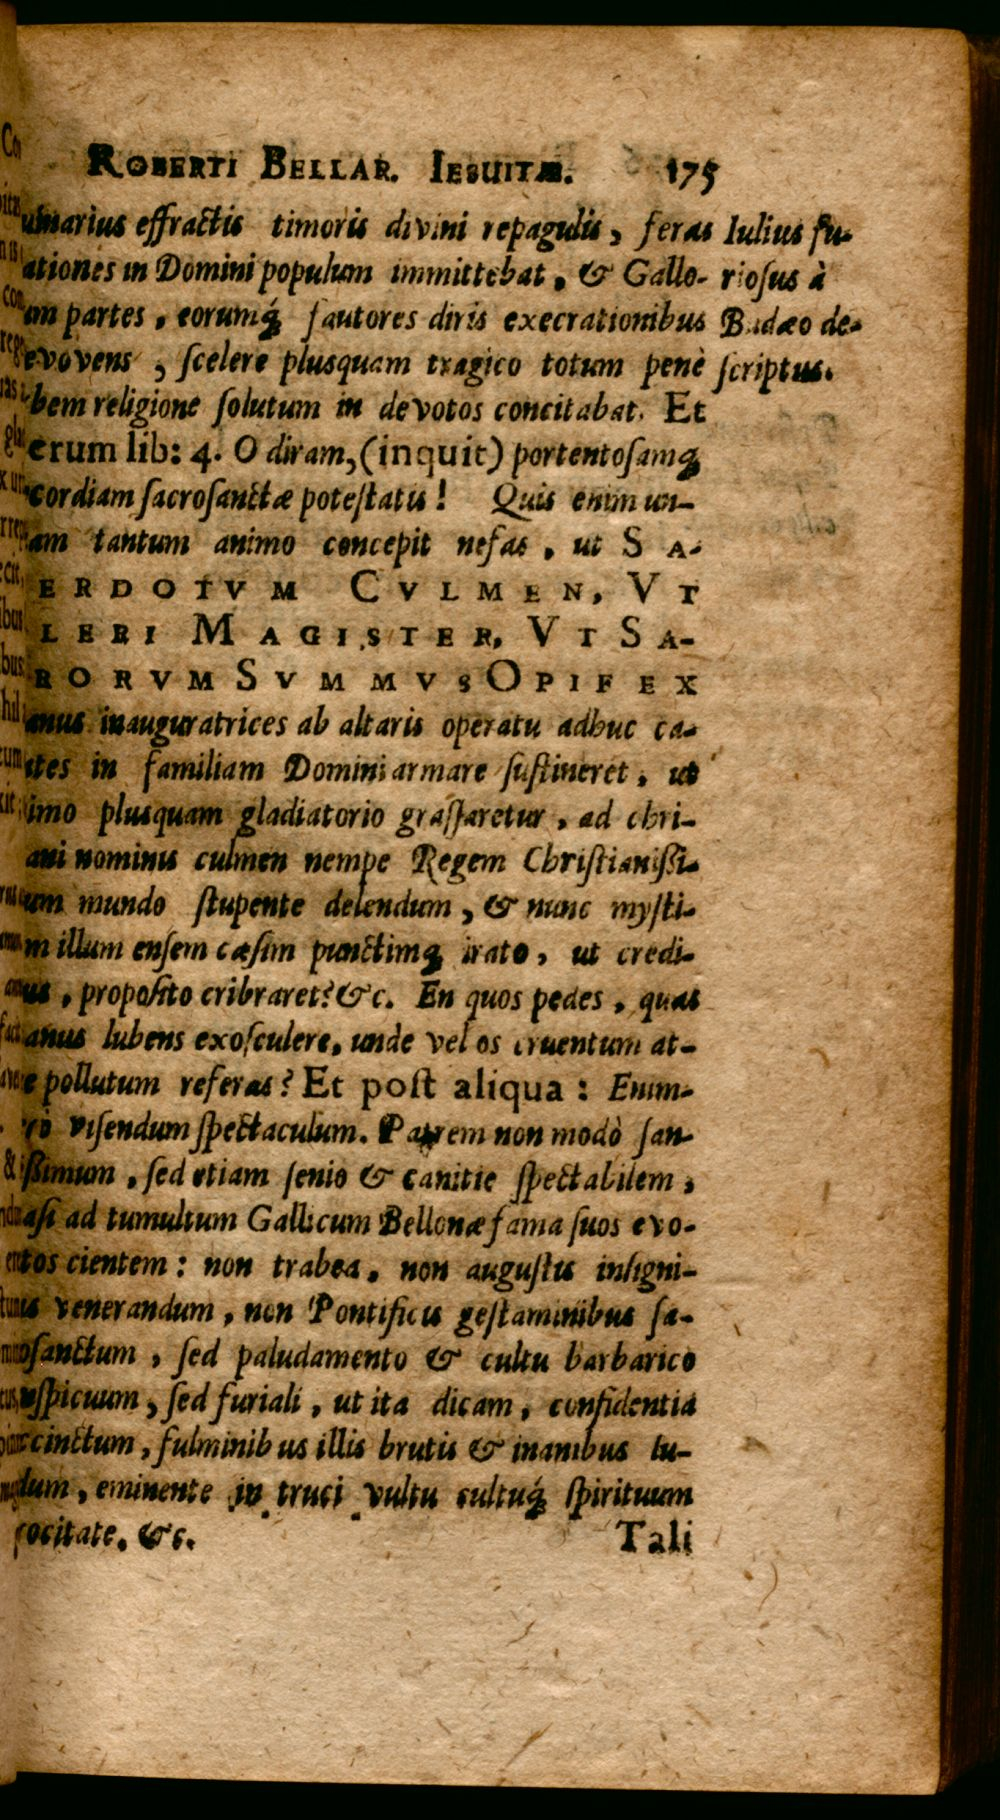 ROBERTI BELLAR. IESUITÆ. 175
ulnarius effractis timoris divini repagulis, feras
ationes in Domini populum immittebat, & Gallo-
um partes, eorumq́; fautores diris execrationibus
evovens, scelere plusquam tragico totum penè
bem religione solutum in devotos concitabat. Et
erum lib: 4. O diram, (inquit) portentosamq;
cordiam sacrosanctæ potestatis! Quis enim un-
am tantum animo concepit nefas, ut SA-
ERDOTVM CVLMEN, VT
LERI MAGISTER, VT SA-
RORVM SVMMVS OPIFEX
anus inauguratrices ab altaris operatu adhuc ca-
tes in familiam Domini armare sustineret, ut
imo plusquam gladiatorio grassaretur, ad chri-
ani nominis culmen nempe Regem Christianissi-
um mundo stupente delendum, & nunc mysti-
m illum ensem cæsim punctimq; irato, ut credi-
us, proposito cribraret? &c. En quos pedes, quas
anus lubens exosculere, unde vel os cruentum at-
e pollutum referas? Et post aliqua: Enim-
rò visendum spectaculum. Patrem non modò san-
issimum, sed etiam senio & canitie spectabilem,
asi ad tumultum Gallicum Bellonæ fama suos evo-
tos cientem: non trabea, non augustis insigni-
is venerandum, non Pontificis gestaminibus sa-
osanctum, sed paludamento & cultu barbarico
nspicuum, sed furiali, ut ita dicam, confidentia
ccinctum, fulminibus illis brutis & inanibus tu-
dum, eminente in truci vultu cultuq́; spirituum
rocitate. &c.
Tali
Iulius fu-
riosus à
Budæo de-
scriptus.